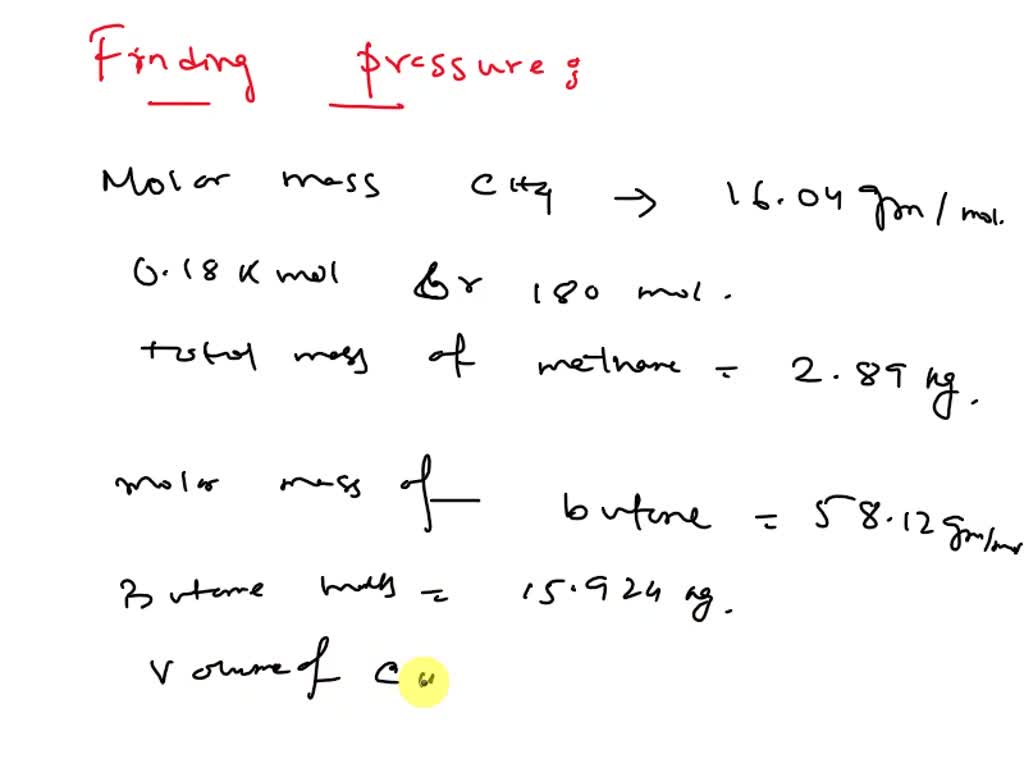 Finding pressure:
Molar mass CH4 → 16.04 gm/mol.
0.18 K mol or 180 mol.
total mass of methane = 2.89 kg.
molar mass of butane = 58.12 gm/mol
Butane mass = 15.924 kg.
Volume of C